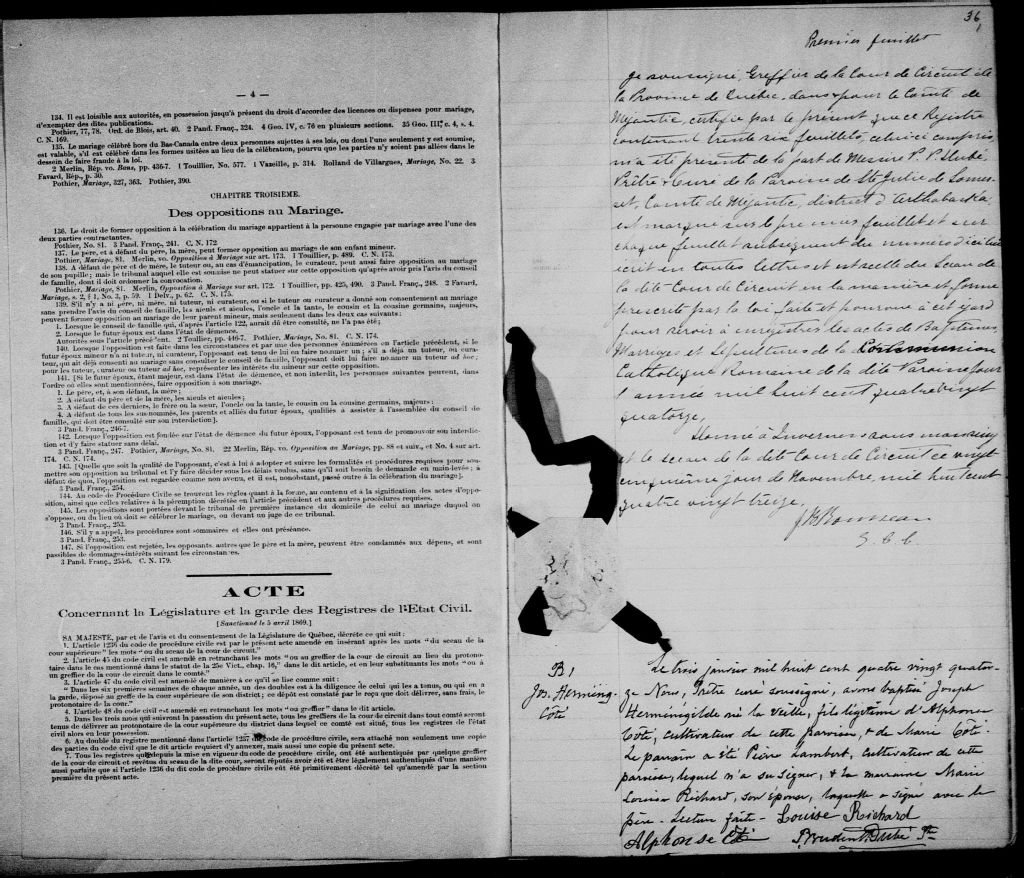 — 4 —
134. Il est loisible aux autorités, en possession jusqu'à présent du droit d'accorder des licences ou dispenses pour mariage,
d'exempter des dites publications.
Pothier, 77, 78. Ord. de Blois, art. 40. 2 Pand. Franç., 324. 4 Geo. IV, c. 76 en plusieurs sections. 35 Geo. III, c. 4, s. 4.
C. N. 169.
135. Le mariage célébré hors du Bas-Canada entre deux personnes sujettes à ses lois, ou dont l'une seulement y est soumise,
est valable, s'il est célébré dans les formes usitées au lieu de la célébration, pourvu que les parties n'y soient pas allées dans le
dessein de faire fraude à la loi.
2 Merlin, Rép. vo. Bans, pp. 436-7. 1 Touillier, No. 577. 1 Vazeille, p. 314. Rolland de Villargues, Mariage, No. 22. 3
Favard, Rép., p. 30.
Pothier, Mariage, 327, 363. Pothier, 390.
CHAPITRE TROISIEME.
Des oppositions au Mariage.
136. Le droit de former opposition à la célébration du mariage appartient à la personne engagée par mariage avec l'une des
deux parties contractantes.
Pothier, No. 81. 3 Pand. Franç., 241. C. N. 172
137. Le père, et à défaut du père, la mère, peut former opposition au mariage de son enfant mineur.
Pothier, Mariage, 81. Merlin, vo. Opposition à Mariage sur art. 173. 1 Touillier, p. 489. C. N. 173.
138. A défaut de père et de mère, le tuteur ou, au cas d'émancipation, le curateur, peut aussi faire opposition au mariage
de son pupille; mais le tribunal auquel elle est soumise ne peut statuer sur cette opposition qu'après avoir pris l'avis du conseil
de famille, dont il doit ordonner la convocation.
Pothier, Mariage, 81. Merlin, Opposition à Mariage sur art. 172. 1 Touillier, pp. 425, 490. 3 Pand. Franç., 248. 2 Favard,
Mariage, s. 2, § 1, No. 3, p. 59. 1 Delv., p. 62. C. N. 175.
139. S'il n'y a ni père, ni mère, ni tuteur, ni curateur, ou si le tuteur ou curateur a donné son consentement au mariage
sans prendre l'avis du conseil de famille, les aieuls et aieules, l'oncle et la tante, le cousin et la cousine germains, majeurs,
peuvent former opposition au mariage de leur parent mineur, mais seulement dans les deux cas suivants:
1. Lorsque le conseil de famille qui, d'après l'article 122, aurait dû être consulté, ne l'a pas été;
2. Lorsque le futur époux est dans l'état de démence.
Autorités sous l'article précé'ent. 2 Touillier, pp. 446-7. Pothier, Mariage, No. 81. C. N. 174.
140. Lorsque l'opposition est faite dans les circonstances et par une des personnes énumérées en l'article précédent, si le
futur époux mineur n'a ni tuteur, ni curateur, l'opposant est tenu de lui en faire nommer un; s'il a déjà un tuteur, ou cura-
teur, qui ait déjà consenti au mariage sans consulter le conseil de famille, l'opposant doit lui faire nommer un tuteur ad hoc;
pour les tuteur, curateur ou tuteur ad hoc, représenter les intérêts du mineur sur cette opposition.
141. [Si le futur époux, étant majeur, est dans l'état de démence, et non interdit, les personnes suivantes peuvent, dans
l'ordre où elles sont mentionnées, faire opposition à son mariage.
1. Le père, et, à son défaut, la mère;
2. A défaut du père et de la mère, les aieuls et aieules;
3. A défaut de ces derniers, le frère ou la sœur, l'oncle ou la tante, le cousin ou la cousine germains, majeurs:
4. A défaut de tous les sus-nommés, les parents et alliés du futur époux, qualifiés à assister à l'assemblée du conseil de
famille, qui doit être consulté sur son interdiction].
3 Pand. Franç., 246-7.
142. Lorsque l'opposition est fondée sur l'état de démence du futur époux, l'opposant est tenu de promouvoir son interdic-
tion et d'y faire statuer sans délai.
3 Pand. Franç., 247. Pothier, Mariage, No. 81. 22 Merlin, Rép. vo. Opposition au Mariage, pp. 88 et suiv., et No. 4 sur art.
174. C. N. 174.
143. [Quelle que soit la qualité de l'opposant, c'est à lui à adopter et suivre les formalités et procédures requises pour sou-
mettre son opposition au tribunal et l'y faire décider sous les délais voulus, sans qu'il soit besoin de demande en main-levée; à
défaut de quoi, l'opposition est regardée comme non avenue, et il est, nonobstant, passé outre à la célébration du mariage].
3 Pand. Franç., 254.
144. Au code de Procédure Civile se trouvent les règles quant à la forme, au contenu et à la signification des actes d'oppo-
sition, ainsi que celles relatives à la péremption décrétée en l'article précédent et aux autres procédures requises.
145. Les oppositions sont portées devant le tribunal de première instance du domicile de celui au mariage duquel on
s'oppose, ou du lieu où doit se célébrer le mariage, ou devant un juge de ce tribunal.
3 Pand. Franç., 253.
146. S'il y a appel, les procédures sont sommaires et elles ont préséance.
3 Pand. Franç., 253.
147. Si l'opposition est rejetée, les opposants autres que le père et la mère, peuvent être condamnés aux dépens, et sont
passibles de dommages-intérêts suivant les circonstances.
3 Pand. Franç., 255-6. C. N. 179.
ACTE
Concernant la Législature et la garde des Registres de l'Etat Civil.
[Sanctionné le 5 avril 1869.]
SA MAJESTÉ, par et de l'avis et du consentement de la Législature de Québec, décrète ce qui suit:
1. L'article 1236 du code de procédure civile est par le présent acte amendé en insérant après les mots "du sceau de la
cour supérieure" les mots "ou du sceau de la cour de circuit."
2. L'article 45 du code civil est amendé en retranchant les mots "ou au greffier de la cour de circuit au lieu du protono-
taire dans le cas mentionné dans le statut de la 25e Vict., chap. 16," dans le dit article, et en leur substituant les mots "ou à
un greffier de la cour de circuit dans le comté."
3. L'article 47 du code civil est amendé de manière à ce qu'il se lise comme suit:
"Dans les six premières semaines de chaque année, un des doubles est à la diligence de celui qui les a tenus, ou qui en a
la garde, déposé au greffe de la cour supérieure de son district; ce dépôt est constaté par le reçu que doit délivrer, sans frais, le
protonotaire de la cour."
4. L'article 48 du code civil est amendé en retranchant les mots "ou greffier" dans le dit article.
5. Dans les trois mois qui suivront la passation du présent acte, tous les greffiers de la cour de circuit dans tout comté seront
tenus de délivrer au protonotaire de la cour supérieure du district dans lequel ce comté est situé, tous les registres de l'état
civil alors en leur possession.
6. Au double du registre mentionné dans l'article 1237 du code de procédure civile, sera attaché non seulement une copie
des parties du code civil que le dit article requiert d'y annexer, mais aussi une copie du présent acte.
7. Tous les registres qui, depuis la mise en vigueur du code de procédure civile, ont été authentiqués par quelque greffier
de la cour de circuit et revêtus du sceau de la dite cour, seront réputés avoir été et être légalement authentiqués d'une manière
aussi parfaite que si l'article 1236 du dit code de procédure civile eût été primitivement décrété tel qu'amendé par la section
première du présent acte.
36
1
Premier feuillet
Je soussigné, Greffier de la Cour de Circuit de
la Province de Québec, dans & pour le Comté de
Mégantic, certifie par le présent que ce Registre
contenant trente six feuillets, celui ci compris
m'a été présenté de la part de Messire P. P. Dubé,
Prêtre & Curé de la Paroisse de Ste Julie de Somer-
set, Comté de Mégantic, district d'Arthabaska,
est marqué sur le premier feuillet et sur
chaque feuillet subséquent du numéro d'icelui
écrit en toutes lettres et est scellé du Sceau de
la dite Cour de Circuit en la manière et forme
prescrite par la loi faite et pourvue à cet égard
pour servir à enregistrer les actes de Baptêmes,
Mariages et Sépultures de la Communion
Catholique Romaine de la dite Paroisse pour
l'année mil huit cent quatre vingt
quatorze,
Donné à Inverness sous mon seing
et le sceau de la dite Cour de Circuit ce vingt
cinquième jour de Novembre, mil huit cent
quatre vingt treize,
Rousseau
G. C. C.
B 1
Jos. Herméné-
Côté
Le trois janvier mil huit cent quatre vingt quator-
ze Nous, Prêtre curé soussigné, avons baptisé Joseph
Herménégilde né la veille, fils légitime d'Alphonse
Côté, cultivateur de cette paroisse, & de Marie Côté.
Le parrain a été Pierre Lambert, cultivateur de cette
paroisse, lequel n'a su signer, & la marraine Marie
Louise Richard, son épouse, laquelle a signé avec le
père - Lecture faite - Louise Richard
Alphonse Côté P. Prudent Dubé Ptre